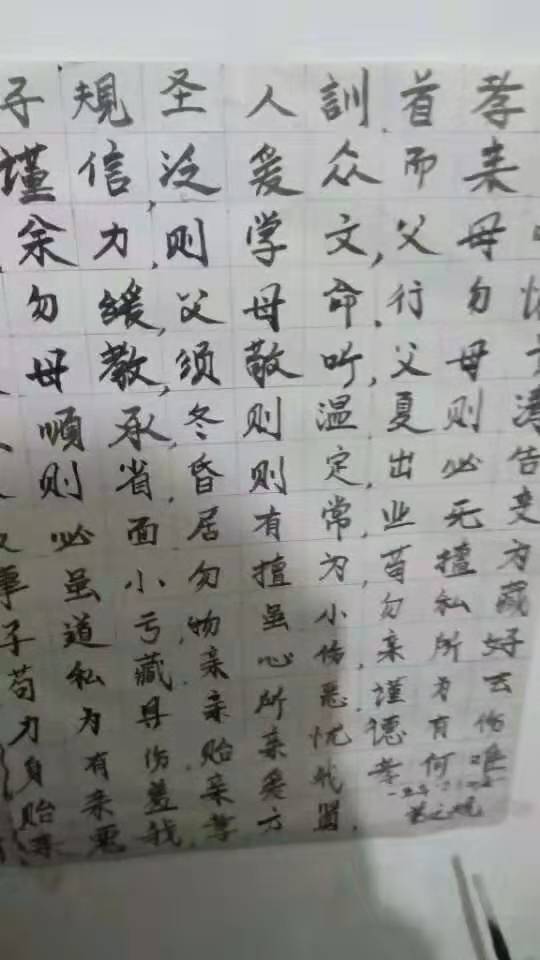 子規圣人訓,首孝
謹信,泛爱众而亲
余力,则学文,父母
勿缓,父母命,行勿
母教,须敬听,父母
順承,冬则温,夏则清
则省,昏则定,出必告
必面,居有常,业无变
事虽小,勿擅为,苟擅为
子道亏,物虽小,勿私藏
苟私藏,亲心伤,亲所好
力为具,亲所恶,謹为去
身有伤,贻亲忧,德有伤
贻亲羞,亲爱我,孝何难
亲恶我,孝方